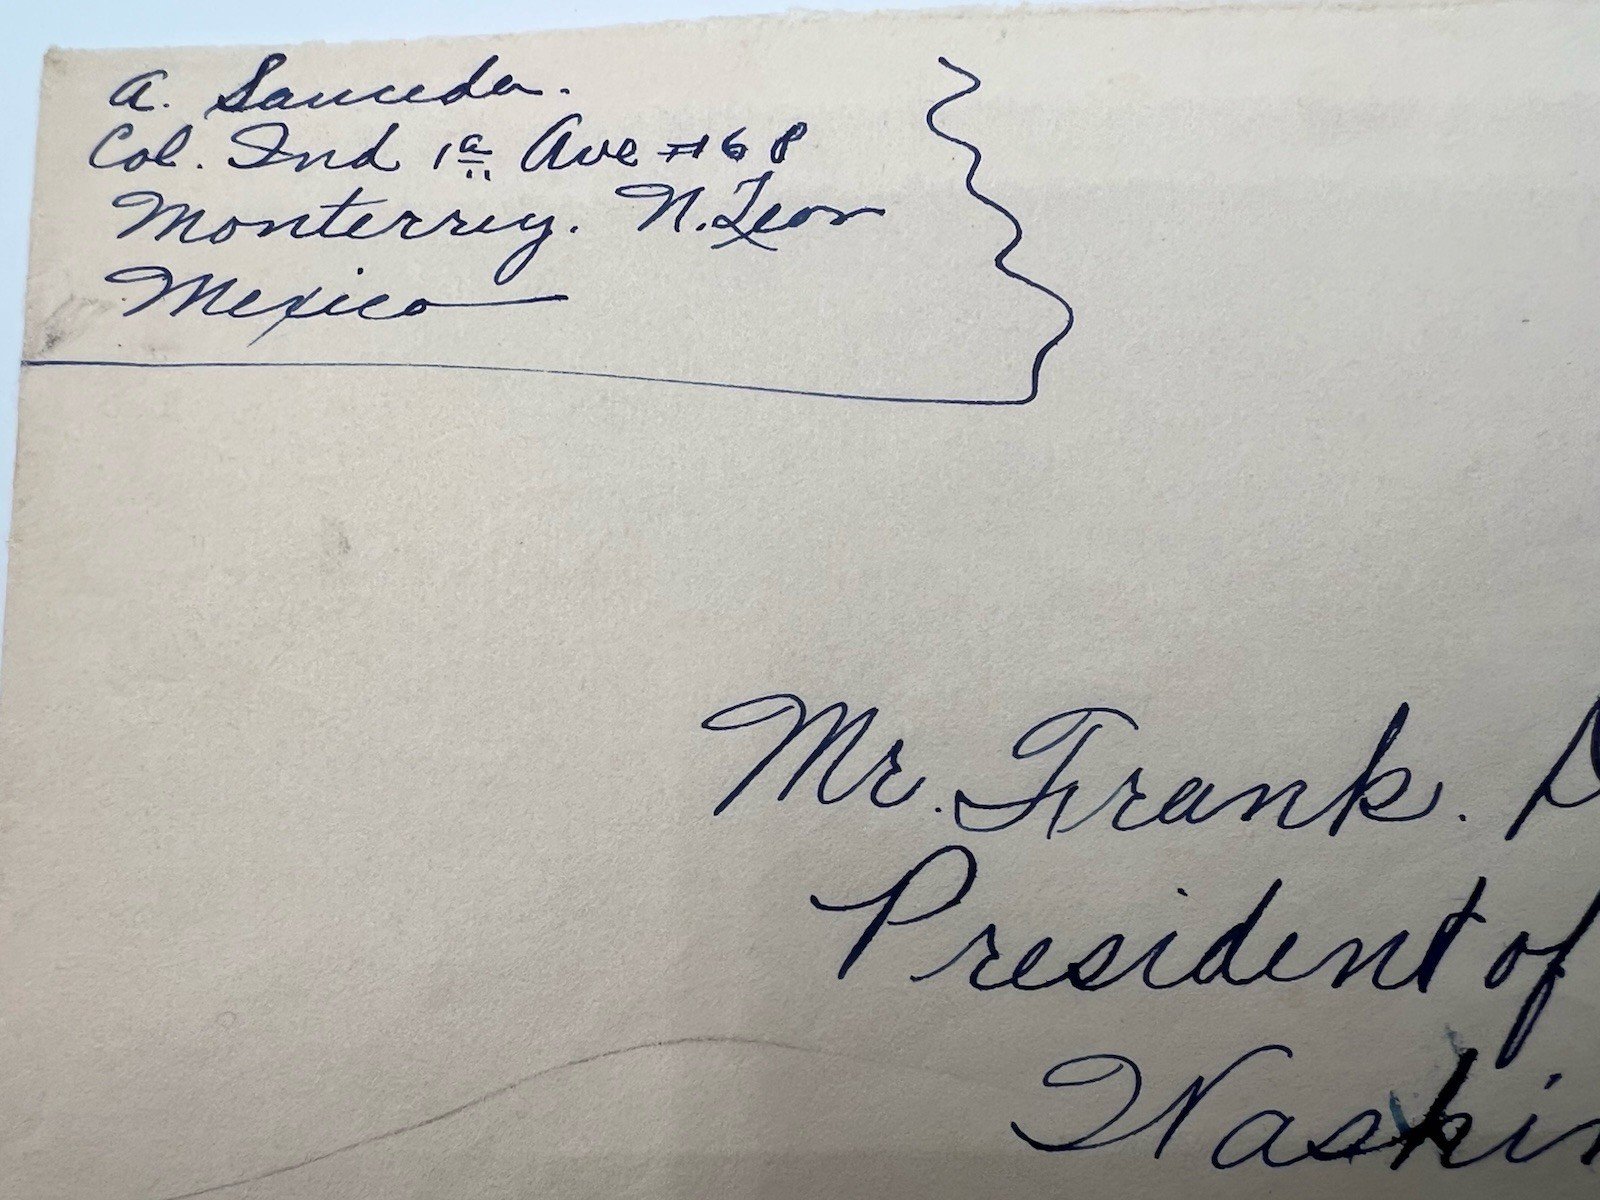 A. Sauceda.
Col. Ind 1a Ave #68
Monterrey. N. Leon
Mexico
Mr. Frank. D
President of
Washin